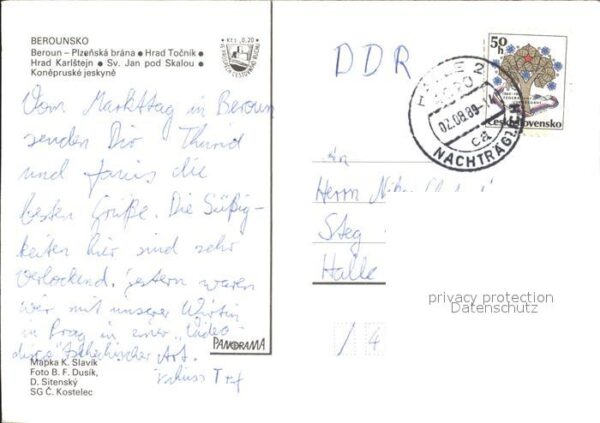 BEROUNSKO
Beroun – Plzeňská brána • Hrad Točník •
Hrad Karlštejn • Sv. Jan pod Skalou •
Koněpruské jeskyně
Kčs 0,20
Vom Markttag in Beroun
senden Dir
und die
besten Grüße. Die Süßig-
keiten hier sind sehr
verlockend. gestern waren
wir mit unserer Wirtin
in Prag in einer „Video-
disco" tschechischer Art.
PANORAMA
Mapka K. Slavík
Foto B. F. Dusík,
D. Sitenský
SG Č. Kostelec
DDR
50 h
Československo
HALLE 2
4020
02.08.89
ca
NACHTRÄGLICH
An
Herrn
Steg
Halle
privacy protection
Datenschutz
/ 4